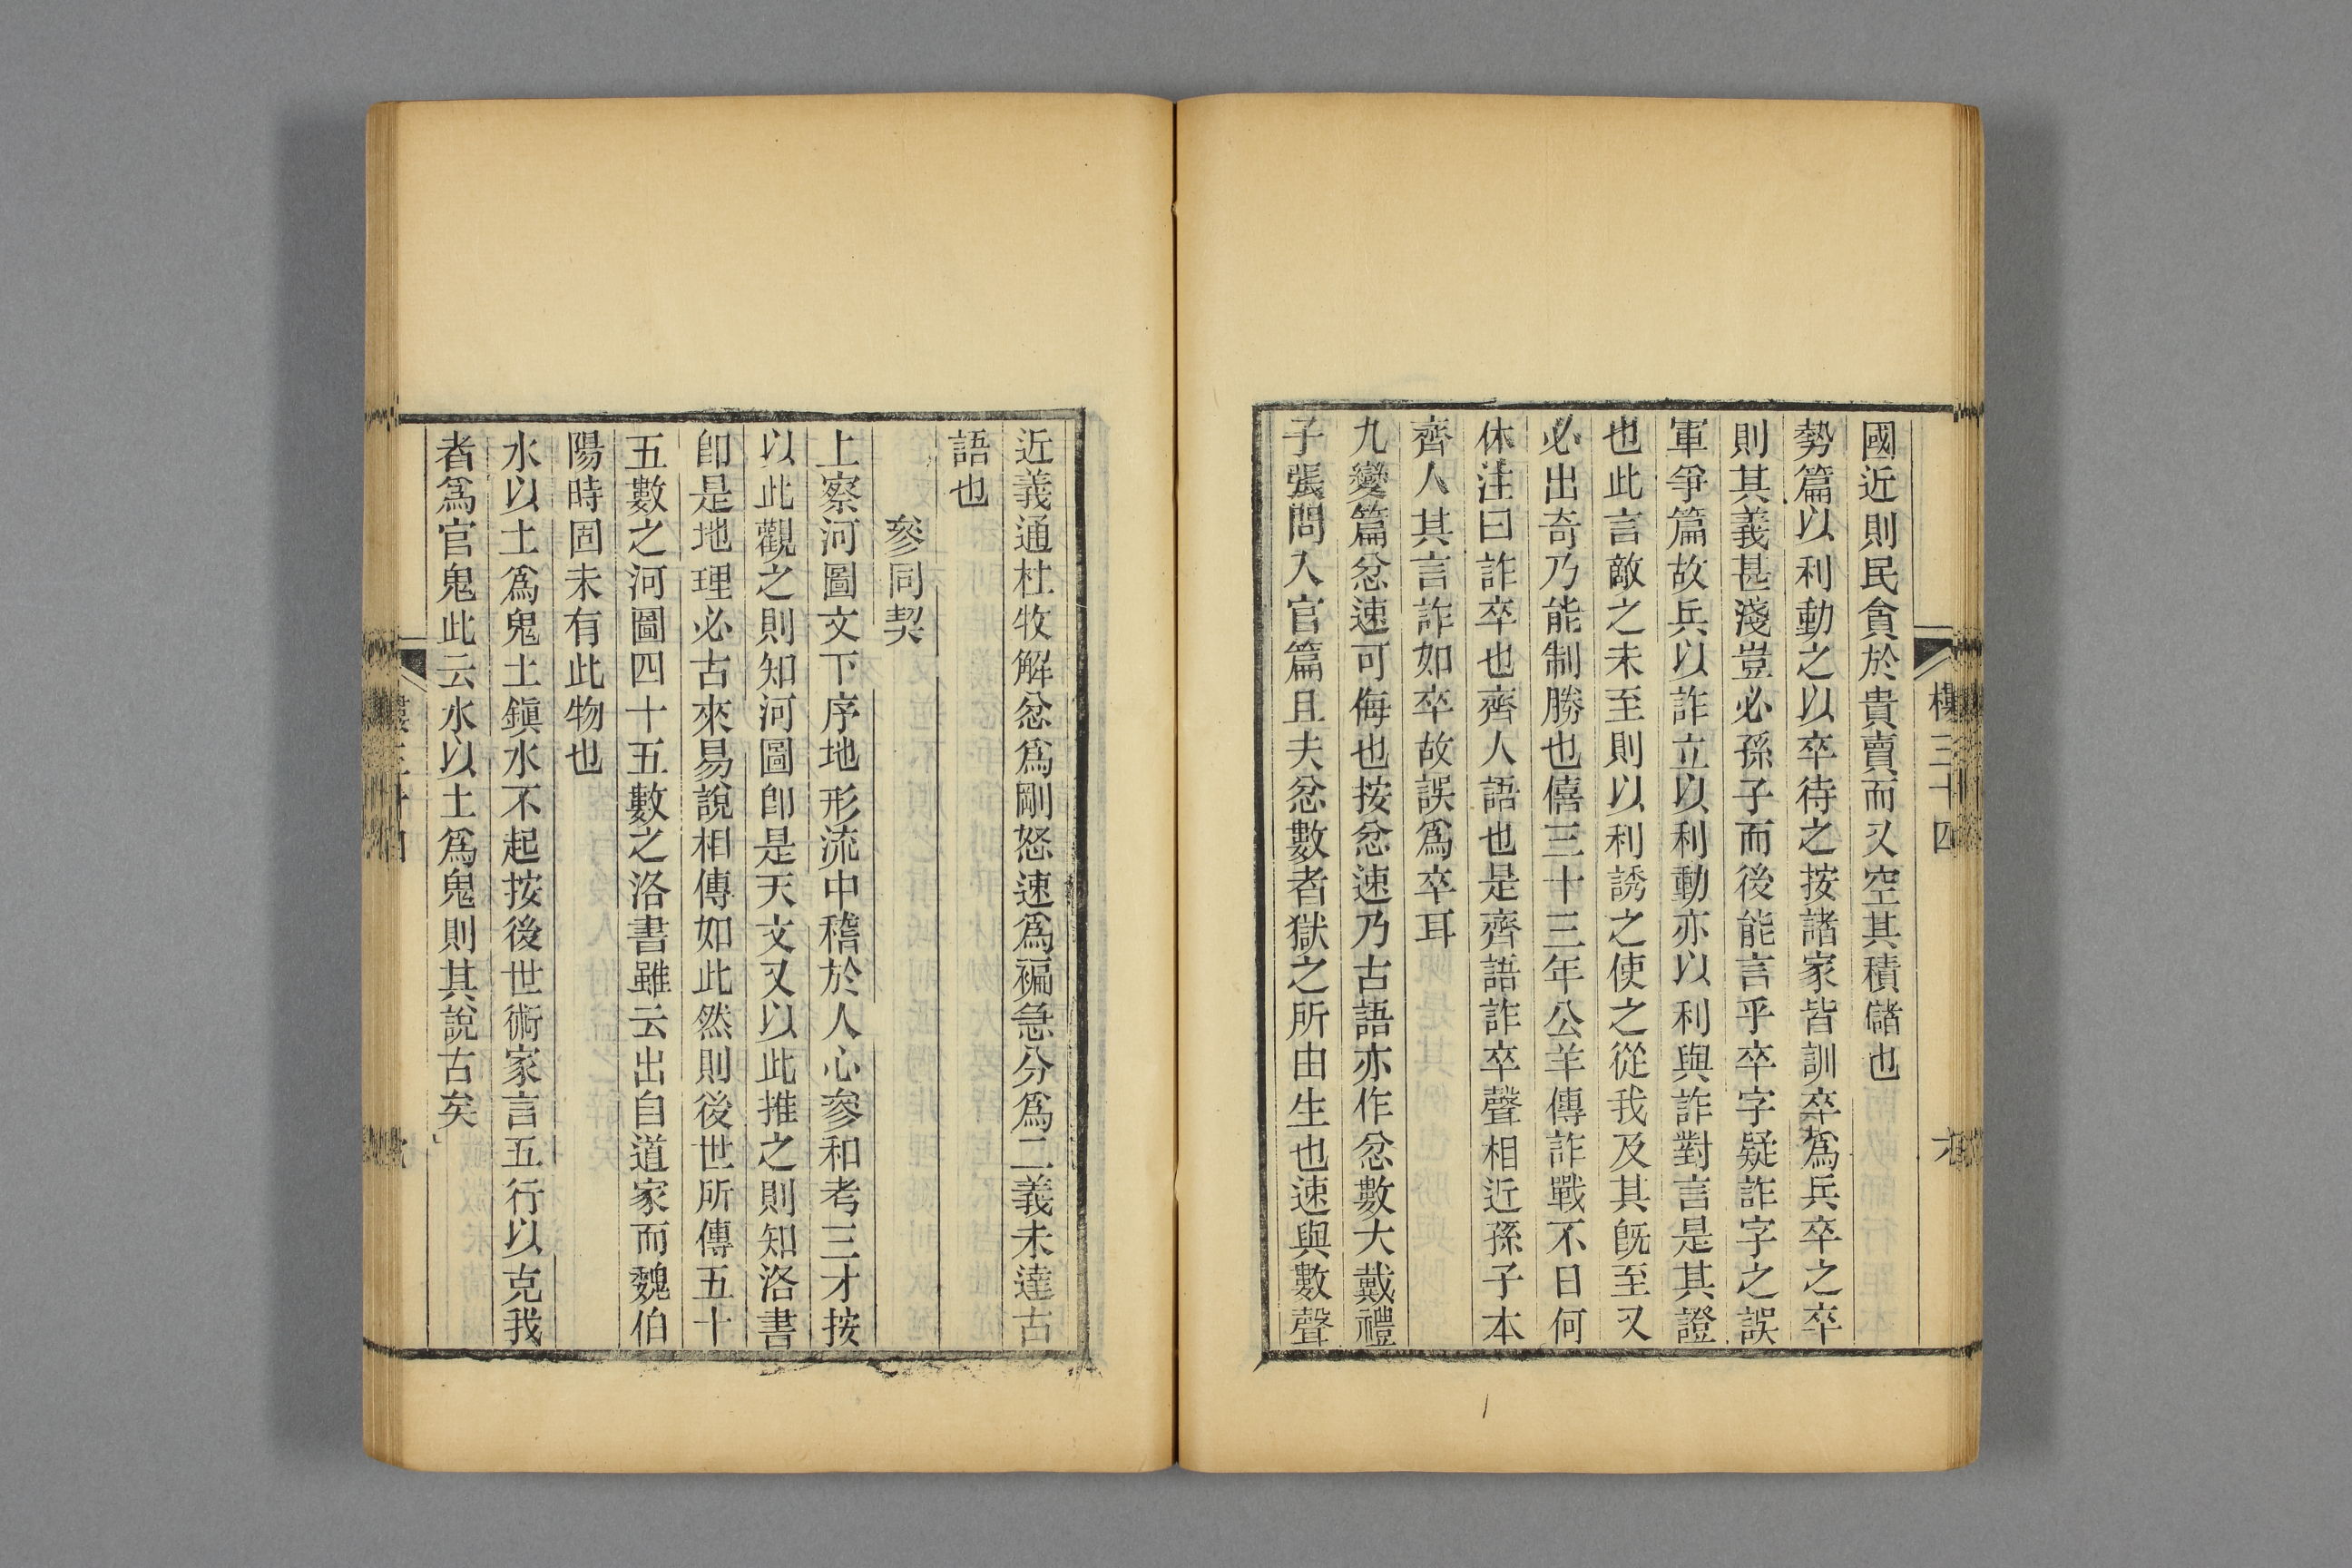 國近則民貪於貴賣而又空其積儲也
勢篇以利動之以卒待之按諸家皆訓卒爲兵卒之卒
則其義甚淺豈必孫子而後能言乎卒字疑詐字之誤
軍爭篇故兵以詐立以利動亦以利與詐對言是其證
也此言敵之未至則以利誘之使之從我及其旣至又
必出奇乃能制勝也僖三十三年公羊傳詐戰不日何
休注曰詐卒也齊人語也是齊語詐卒聲相近孫子本
齊人其言詐如卒故誤爲卒耳
九變篇忿速可侮也按忿速乃古語亦作忿數大戴禮
子張問入官篇且夫忿數者獄之所由生也速與數聲
近義通杜牧解忿爲剛怒速爲褊急分爲二義未達古
語也
參同契
上察河圖文下序地形流中稽於人心參和考三才按
以此觀之則知河圖卽是天文又以此推之則知洛書
卽是地理必古來易說相傳如此然則後世所傳五十
五數之河圖四十五數之洛書雖云出自道家而魏伯
陽時固未有此物也
水以土爲鬼土鎭水不起按後世術家言五行以克我
者爲官鬼此云水以土爲鬼則其說古矣
樓三十四